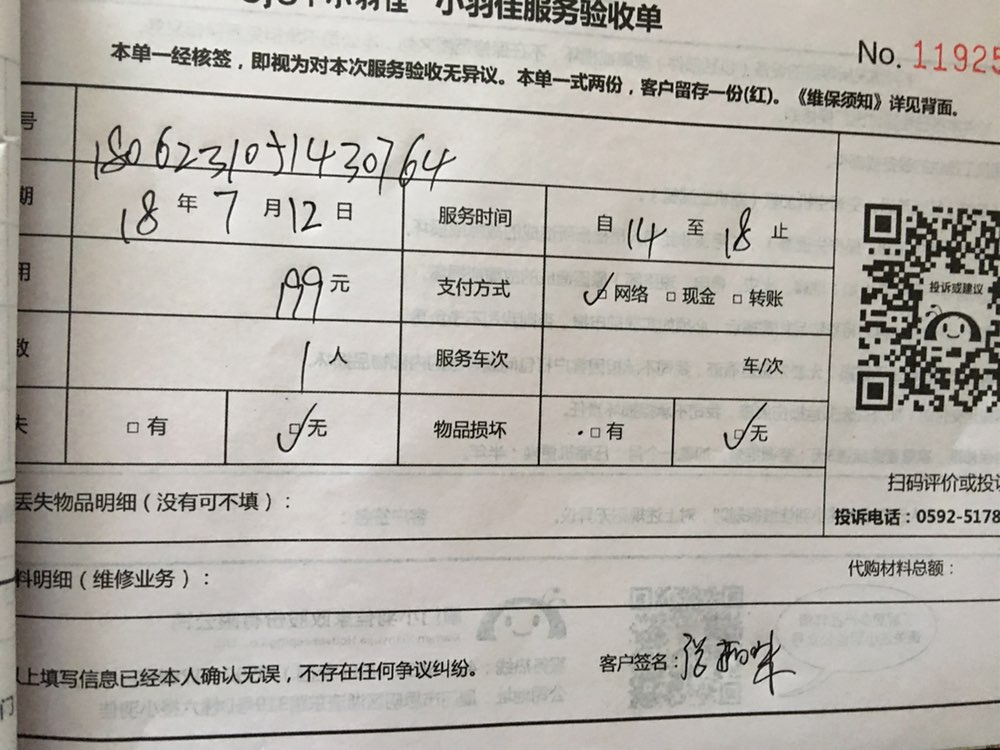 小羽佳服务验收单
No. 11925
本单一经核签，即视为对本次服务验收无异议。本单一式两份，客户留存一份(红)。《维保须知》详见背面。
号 1806231051430764
期 18 年 7 月 12 日 服务时间 自 14 至 18 止
用 199 元 支付方式 ✓□ 网络 □ 现金 □ 转账
投诉或建议
数 1 人 服务车次 车/次
失 □ 有 ✓□ 无 物品损坏 □ 有 ✓□ 无
扫码评价或投诉
丢失物品明细（没有可不填）：
投诉电话：0592-5178
料明细（维修业务）：
代购材料总额：
上填写信息已经本人确认无误，不存在任何争议纠纷。
客户签名：